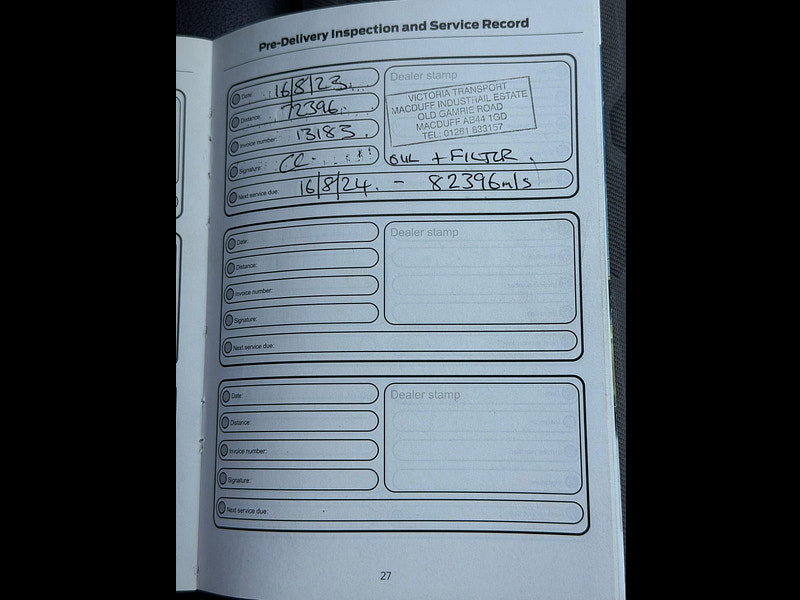 Pre-Delivery Inspection and Service Record
Date: 16/8/23.
Distance: 72396.
Invoice number: 13183.
Signature:
Dealer stamp
VICTORIA TRANSPORT
MACDUFF INDUSTRAIL ESTATE
OLD GAMRIE ROAD
MACDUFF AB44 1GD
TEL: 01261 833157
OIL + FILTER.
Next service due: 16/8/24. - 82396m/s
Date:
Distance:
Invoice number:
Signature:
Dealer stamp
Next service due:
Date:
Distance:
Invoice number:
Signature:
Dealer stamp
Next service due:
27